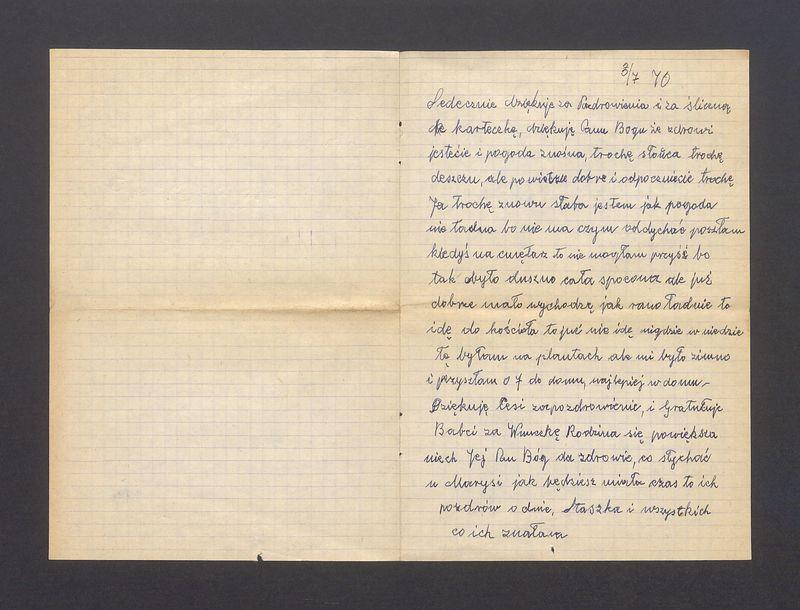 3/7 70
Sedecznie dziękuje za Pozdrowienia i za śliczną
karteczkę, dziękuję Panu Bogu że zdrowi
jesteście i pogoda znośna, trochę słońca trochę
deszczu, ale powietrze dobre i odpoczniecie trochę
Ja trochę znowu słaba jestem jak pogoda
nie ładna bo nie ma czym oddychać poszłam
kiedyś na cmętarz to nie mogłam przyść bo
tak było duszno cała spocona ale już
dobrze mało wychodzę jak rano ładnie to
idę do kościoła to już nie idę nigdzie w niedzie
lę byłam na plantach ale mi było zimno
i przyszłam o 7 do domu, najlepiej w domu –
Dziękuję Cesi za pozdrowienie, i Gratuluje
Babci za Wnuczkę Rodzina się powiększa
niech Jej Pan Bóg da zdrowie, co słychać
u Marysi jak będziesz miała czas to ich
pozdrów odnie, Staszka i wszystkich
co ich znałam